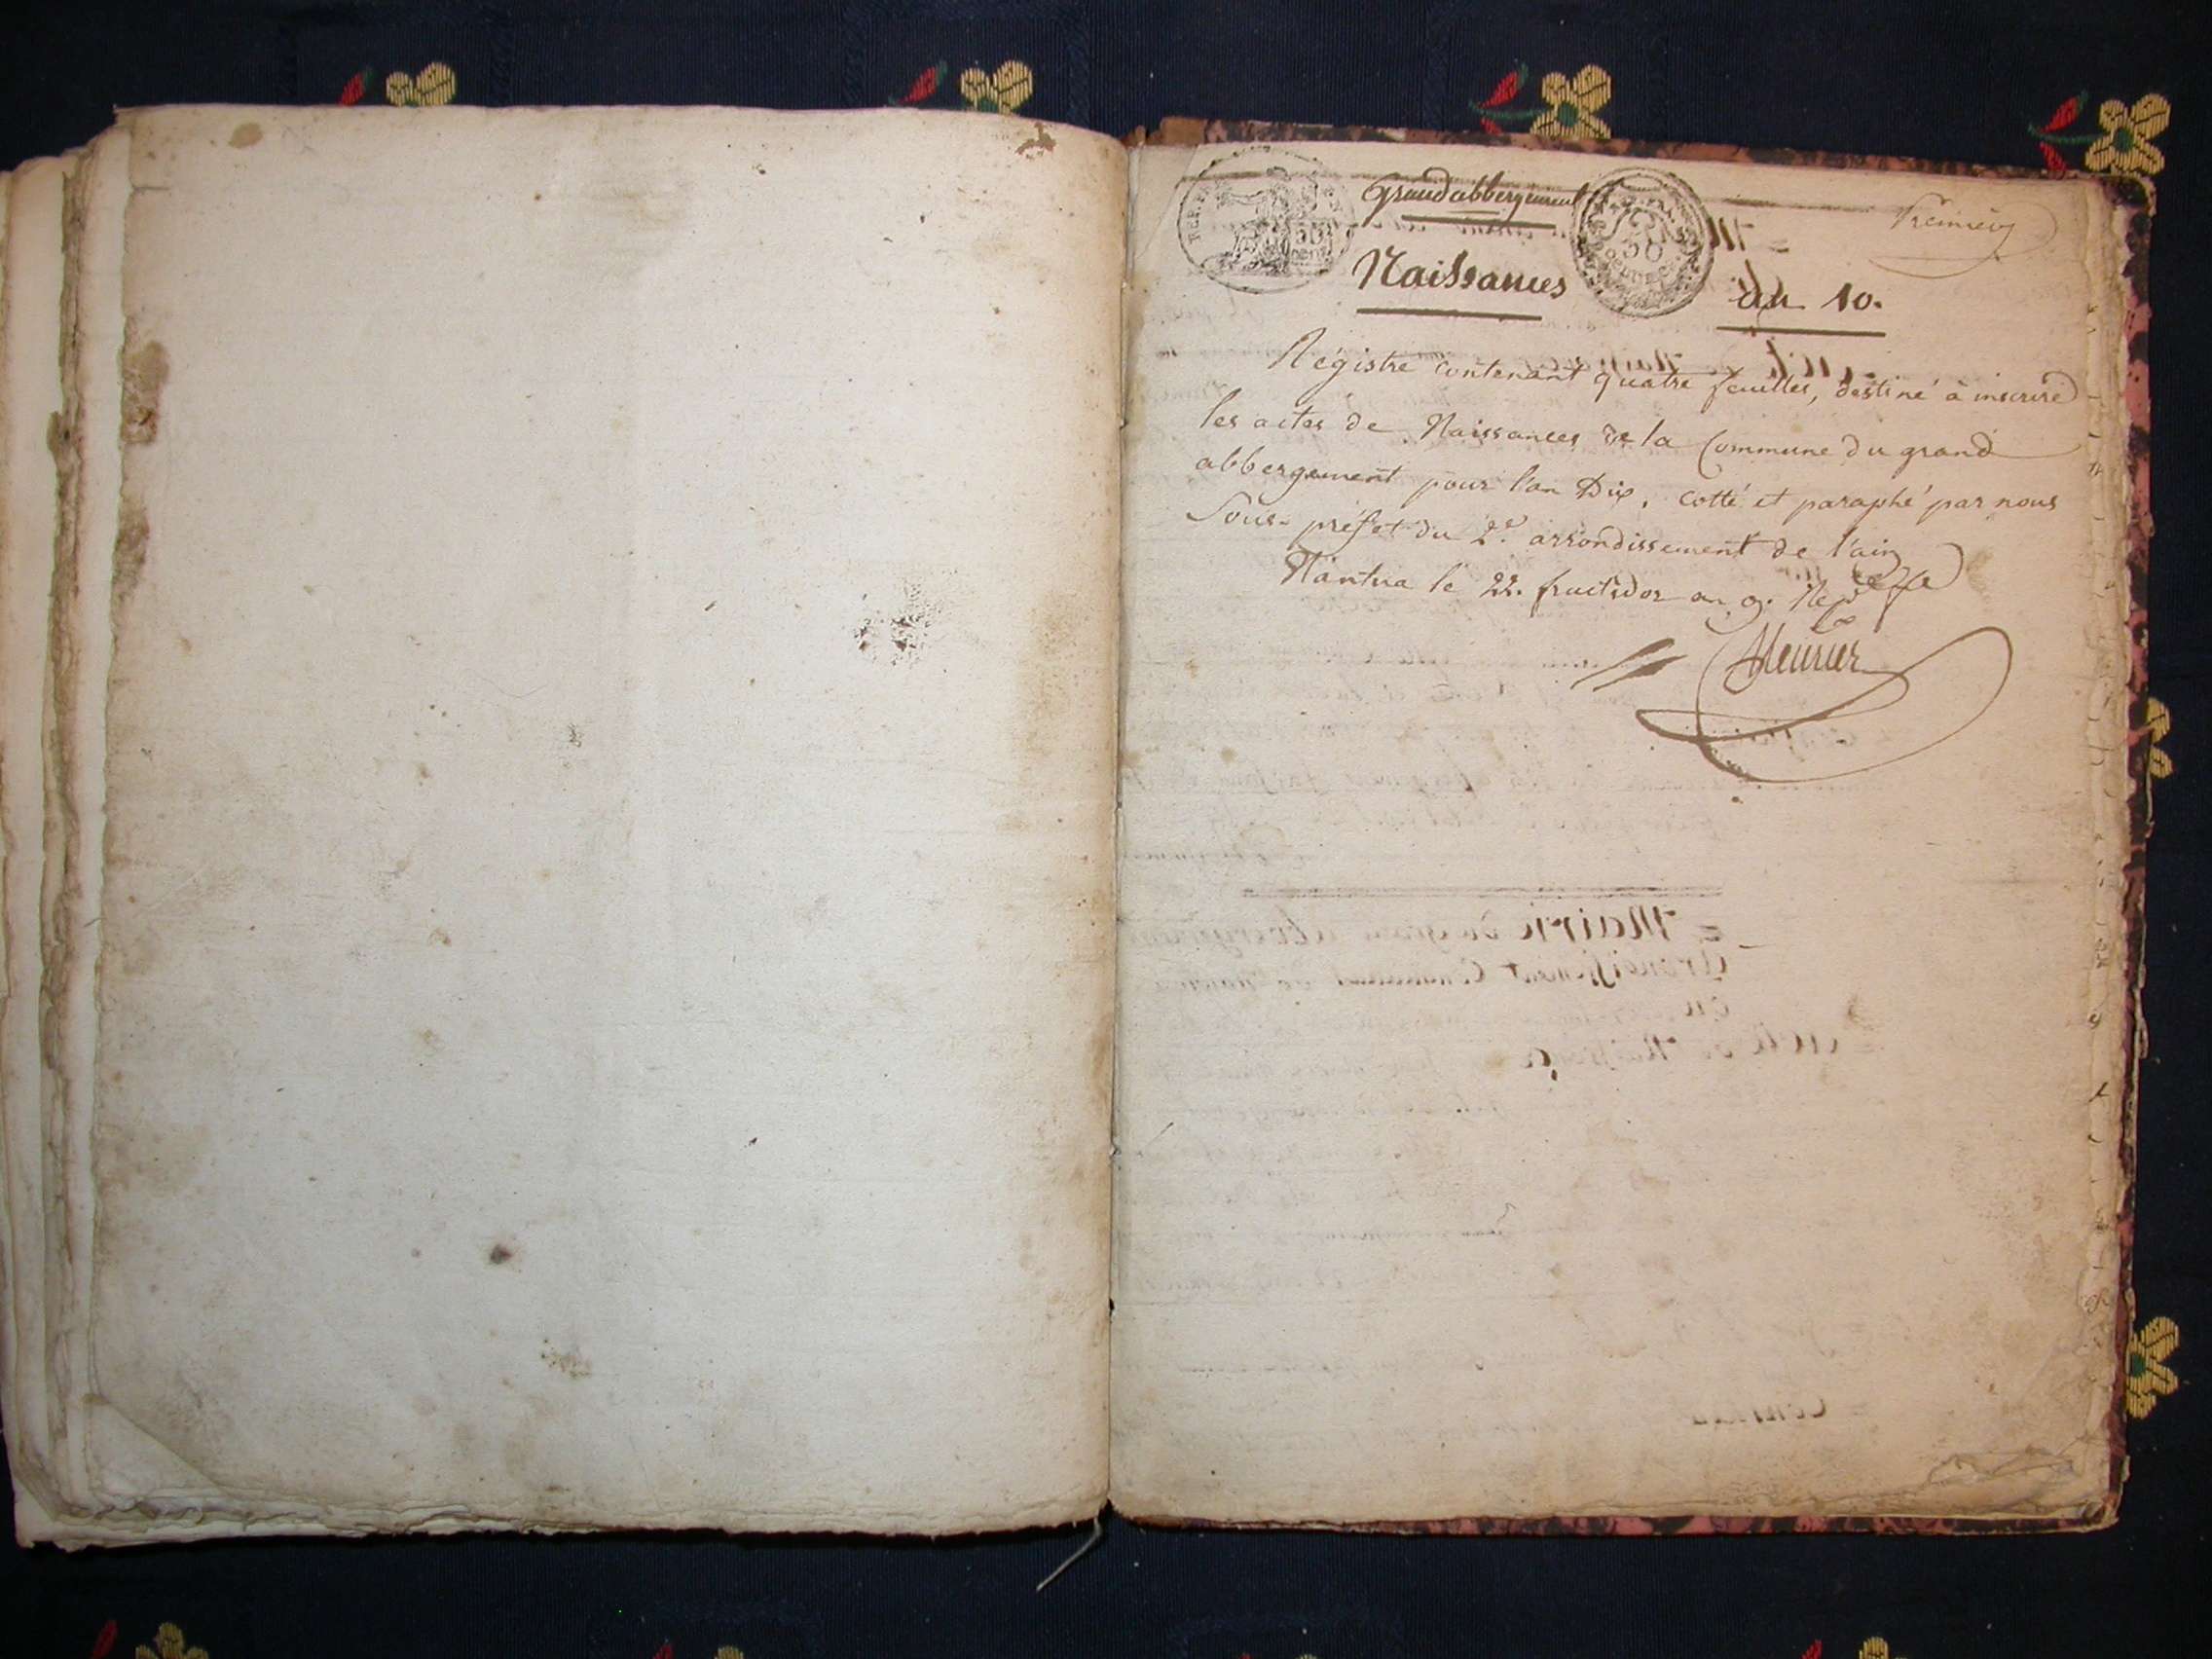 Grandabbergement
Premier
Naissances
an 10.
Régistre contenant quatre feuilles, destiné à inscrire
les actes de Naissances de la Commune du grand
abbergement pour l'an Dix, cotté et paraphé par nous
Sous-préfet du 2e. arrondissement de l'ain
Nantua le 22. fructidor an 9.